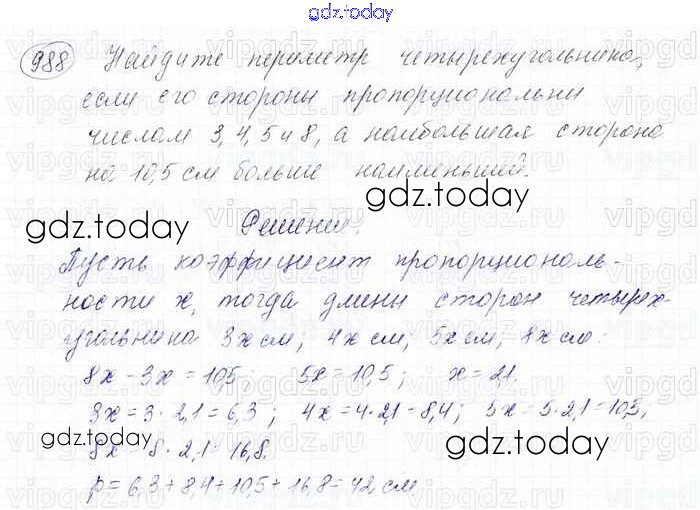 gdz.today
988 Найдите периметр четырехугольника,
если его стороны пропорциональны
числам 3, 4, 5 и 8, а наибольшая сторона
на 10,5 см больше наименьшей.
gdz.today
Решение.
gdz.today
Пусть коэффициент пропорциональ-
ности x, тогда длины сторон четырех-
угольника 3x см; 4x см; 5x см; 8x см.
8x - 3x = 10,5; 5x = 10,5; x = 2,1.
3x = 3 · 2,1 = 6,3; 4x = 4 · 2,1 = 8,4; 5x = 5 · 2,1 = 10,5;
gdz.today
gdz.today
8x = 8 · 2,1 = 16,8.
P = 6,3 + 8,4 + 10,5 + 16,8 = 42 см